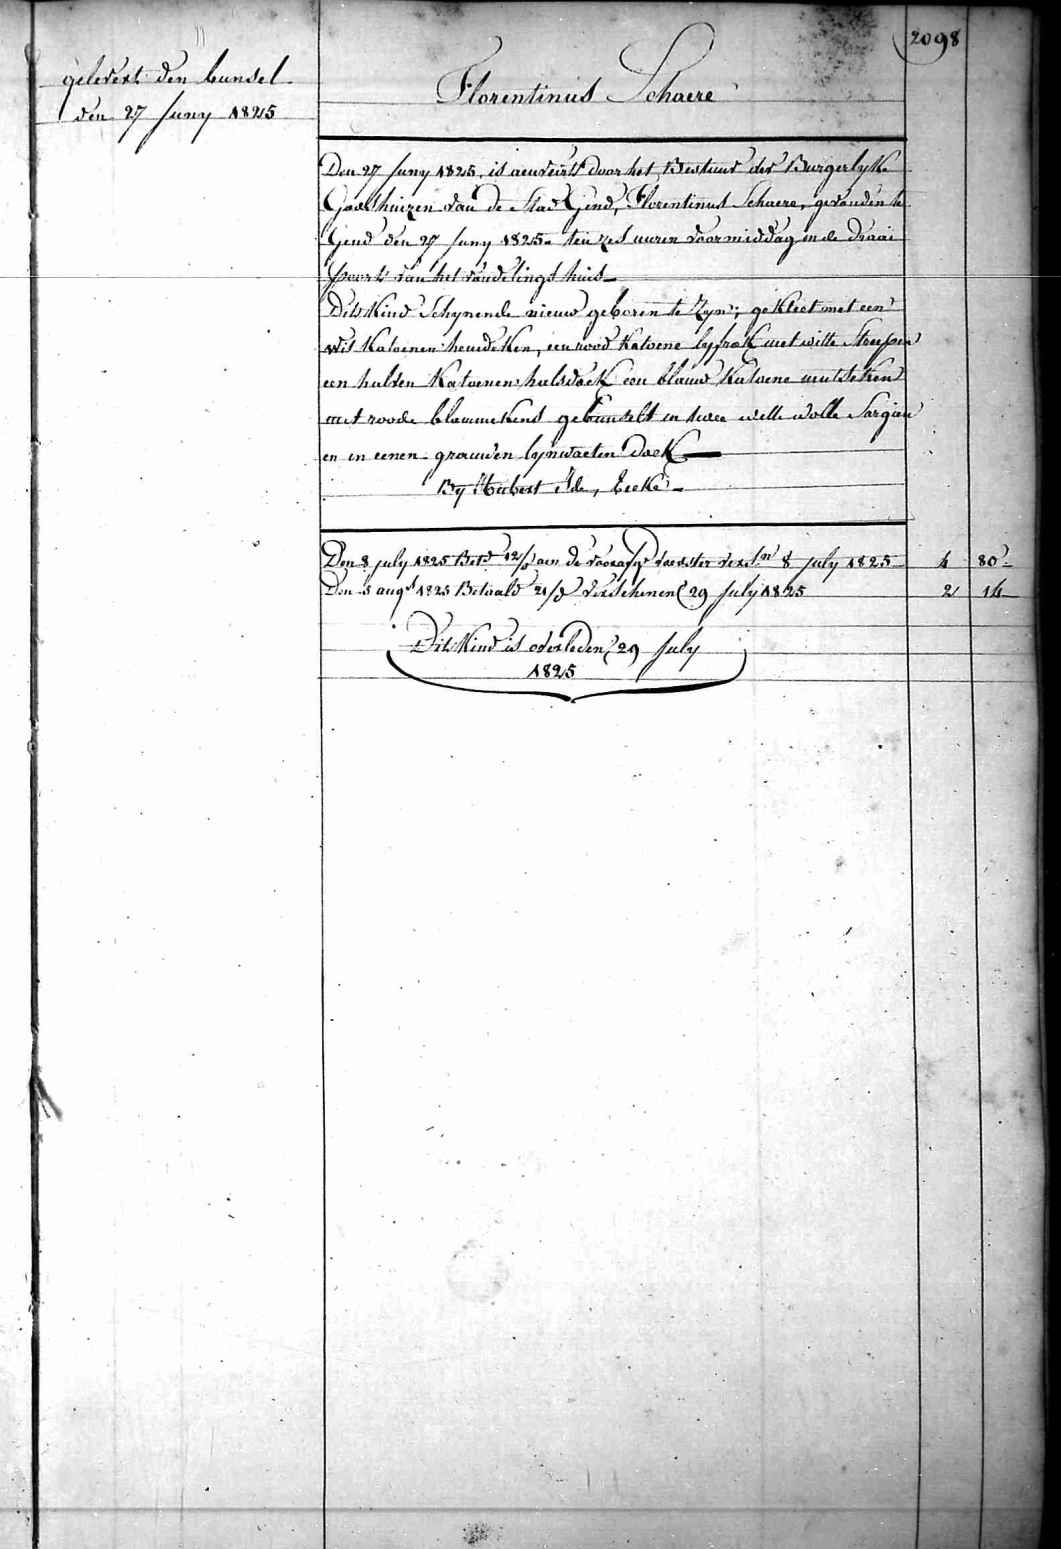 2098
gelevert den bunsel
den 27 Juny 1825
Florentinus Schaere
Den 27 Juny 1825, is aenveirt door het Bestuur der Burgerlyke
Godshuizen van de Stad Gend, Florentinus Schaere, gevonden te
Gend den 27 Juny 1825 ten zes uuren voormiddag in de draai
poort van het vondelingshuis
Dit Kind Schynende nieuw geboren te Zyn; gekleet met een
wit Katoenen hemdeken, een rood Katoene lyfrok met witte Streepen
een halven Katoenen halsdoek een blauw Katoene mutsteken
met roode blommekens gebunselt in twee witte wolle Sargien
en in eenen grauwen lynwaeten doek
By Hubert Ide, Eecke
Den 8 july 1825 Bet.d 12/s aen de voedster 8 july 1825 4 80
Den 5 augt 1825 Betaald 21/s verschenen 29 July 1825 2 14
Dit Kind is overleden 29 July
1825